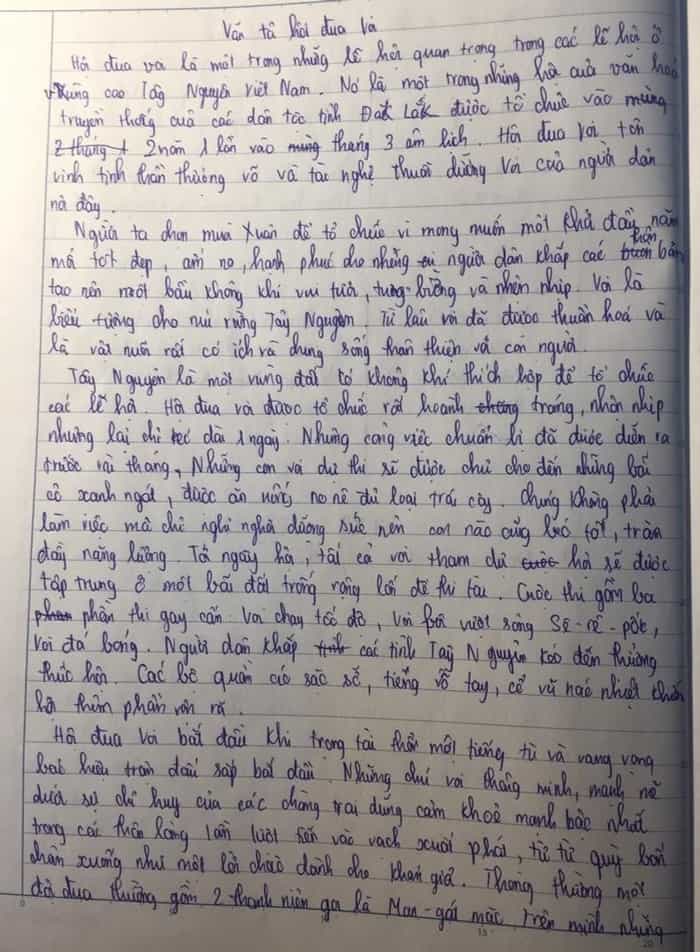 Văn tả hội đua voi
Hội đua voi là một trong những lễ hội quan trọng trong các lễ hội ở
vùng cao Tây Nguyên Việt Nam. Nó là một trong những hội của văn hoá
truyền thống của các dân tộc tỉnh Đak Lăk được tổ chức vào mùng
2 tháng 1 2 năm 1 lần vào mùng tháng 3 âm lịch. Hội đua voi tôn
vinh tinh thần thượng võ và tài nghệ thuần dưỡng voi của người dân
nơi đây.
Người ta chọn mùa xuân để tổ chức vì mong muốn một khởi đầu năm
mới tốt đẹp, ấm no, hạnh phúc cho những người dân khắp các buôn bản
tạo nên một bầu không khí vui tươi, tưng bừng và nhộn nhịp. Voi là
biểu tượng cho núi rừng Tây Nguyên. Từ lâu voi đã được thuần hoá và
là vật nuôi rất có ích và chung sống thân thiện với con người.
Tây Nguyên là một vùng đất có không khí thích hợp để tổ chức
các lễ hội. Hội đua voi được tổ chức rất hoành tráng, nhộn nhịp
nhưng lại chỉ kéo dài 1 ngày. Những công việc chuẩn bị đã được diễn ra
trước vài tháng, Những con voi dự thi sẽ được chủ cho đến những bãi
cỏ xanh ngát, được ăn uống no nê đủ loại trái cây. Chúng không phải
làm việc mà chỉ nghỉ ngơi dưỡng sức nên con nào cũng tốt, tràn
đầy năng lượng. Tới ngày hội, tất cả voi tham dự cuộc hội sẽ được
tập trung ở một bãi đất trống rộng lớn để thi tài. Cuộc thi gồm ba
phần phần thi gay cấn: Voi chạy tốc độ, voi bơi vượt sông Sê-rê-pôk,
voi đá bóng. Người dân khắp tỉnh các tỉnh Tây Nguyên kéo đến thưởng
thức hội. Các bộ quần áo sặc sỡ, tiếng vỗ tay, cổ vũ náo nhiệt khiến
hội thêm phần vui vẻ.
Hội đua voi bắt đầu khi trọng tài thổi một tiếng tù và vang vọng
báo hiệu trận đấu sắp bắt đầu. Những chú voi thông minh, mạnh mẽ
dưới sự chỉ huy của các chàng trai dũng cảm khoẻ mạnh bậc nhất
trong các thôn làng lần lượt tiến vào vạch xuất phát, từ từ quỳ bốn
chân xuống như một lời chào dành cho khán giả. Thông thường một
đội đua thường gồm 2 thanh niên gọi là Man-gát mặc trên mình những